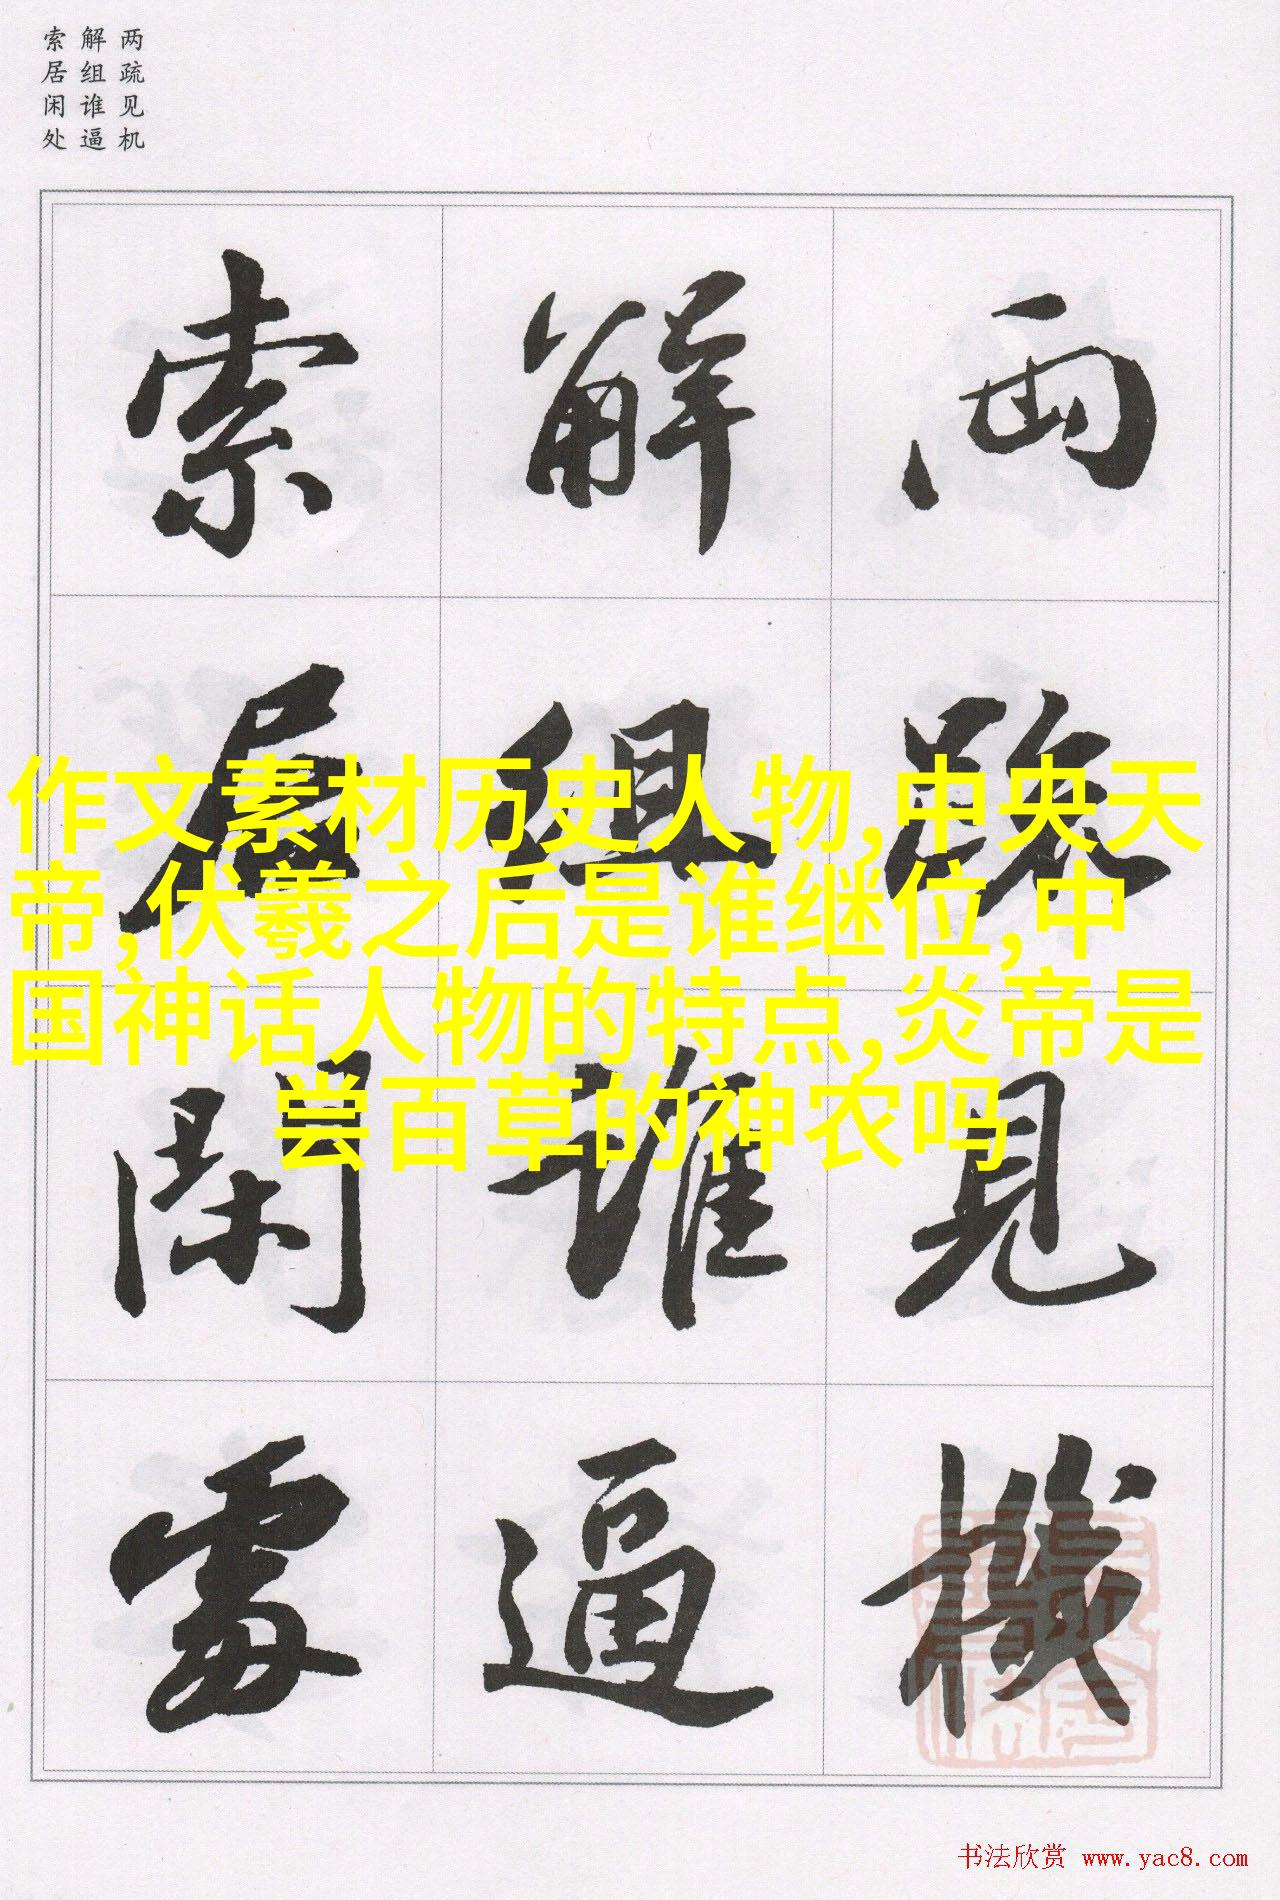 两疏见机
解组谁逼
索居闲处
兩疏見機
解組誰逼
索居閑處
作文素材历史人物,中央天
帝,伏羲之后是谁继位,中
国神话人物的特点,炎帝是
尝百草的神农吗
书法欣赏 www.yac8.com